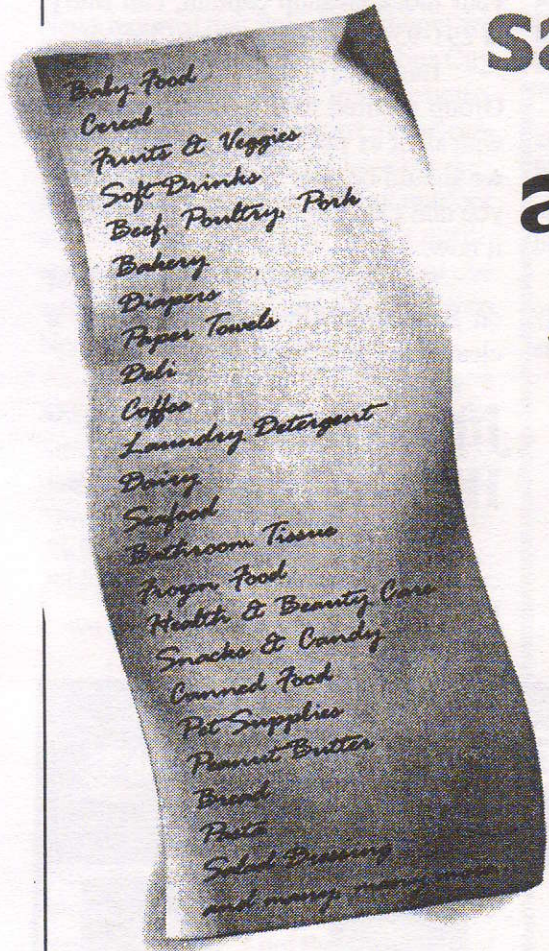 Baby Food
Cereal
Fruits & Veggies
Soft Drinks
Beef, Poultry, Pork
Bakery
Diapers
Paper Towels
Deli
Coffee
Laundry Detergent
Dairy
Seafood
Bathroom Tissue
Frozen Food
Health & Beauty Care
Snacks & Candy
Canned Food
Pet Supplies
Peanut Butter
Bread
Pasta
Salad Dressing
and many, many more.
sa
a